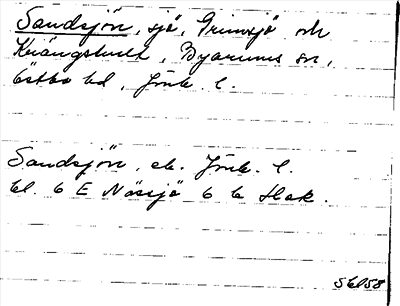 Sandsjön, sjö, Grimsjö och
Krängshult, Byarums sn,
Östbo hd, Jönk. l.
Sandsjön, ek. Jönk. l.
bl. 6 E Nässjö 6 b Hok.
S6U58